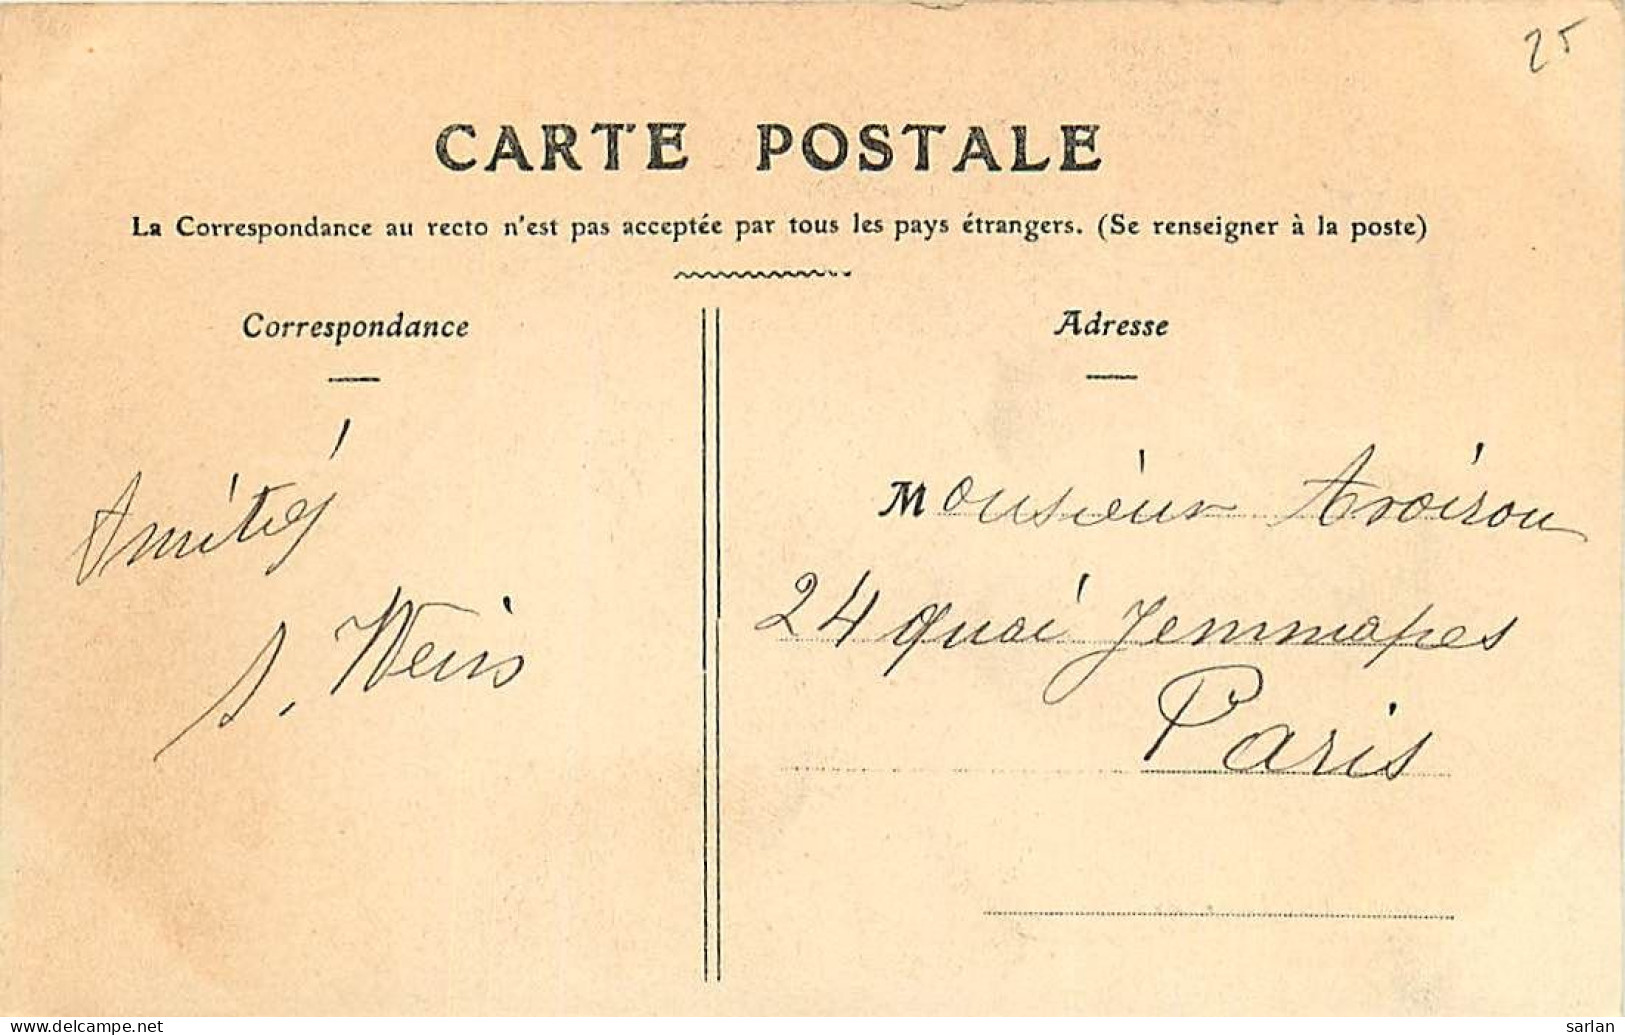 25
CARTE POSTALE
La Correspondance au recto n'est pas acceptée par tous les pays étrangers. (Se renseigner à la poste)
Correspondance
Amitiés
S. Weiss
Adresse
Monsieur Avoiron
24 quai Jemmapes
Paris
www.delcampe.net
sarlan